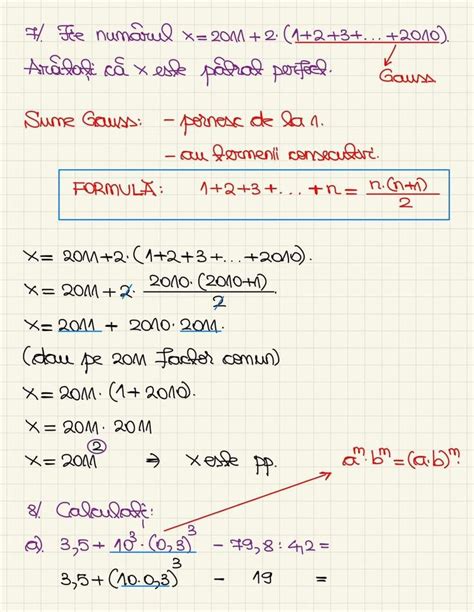 7/ Fie numărul x=2011+2·(1+2+3+...+2010).
Arătați că x este pătrat perfect.
Gauss
Sume Gauss: - pornesc de la 1.
- au termenii consecutivi.
FORMULĂ: 1+2+3+...+n= n·(n+1)/2
x= 2011+2·(1+2+3+...+2010).
x= 2011+2· 2010·(2010+1)/2
x= 2011 + 2010·2011.
(dau pe 2011 factor comun)
x= 2011·(1+2010).
x= 2011·2011
x= 2011² ⇒ x este pp. aᵐ·bᵐ=(a·b)ᵐ.
8/ Calculați:
a) 3,5+10³·(0,3)³ - 79,8:4,2=
3,5+(10·0,3)³ - 19 =